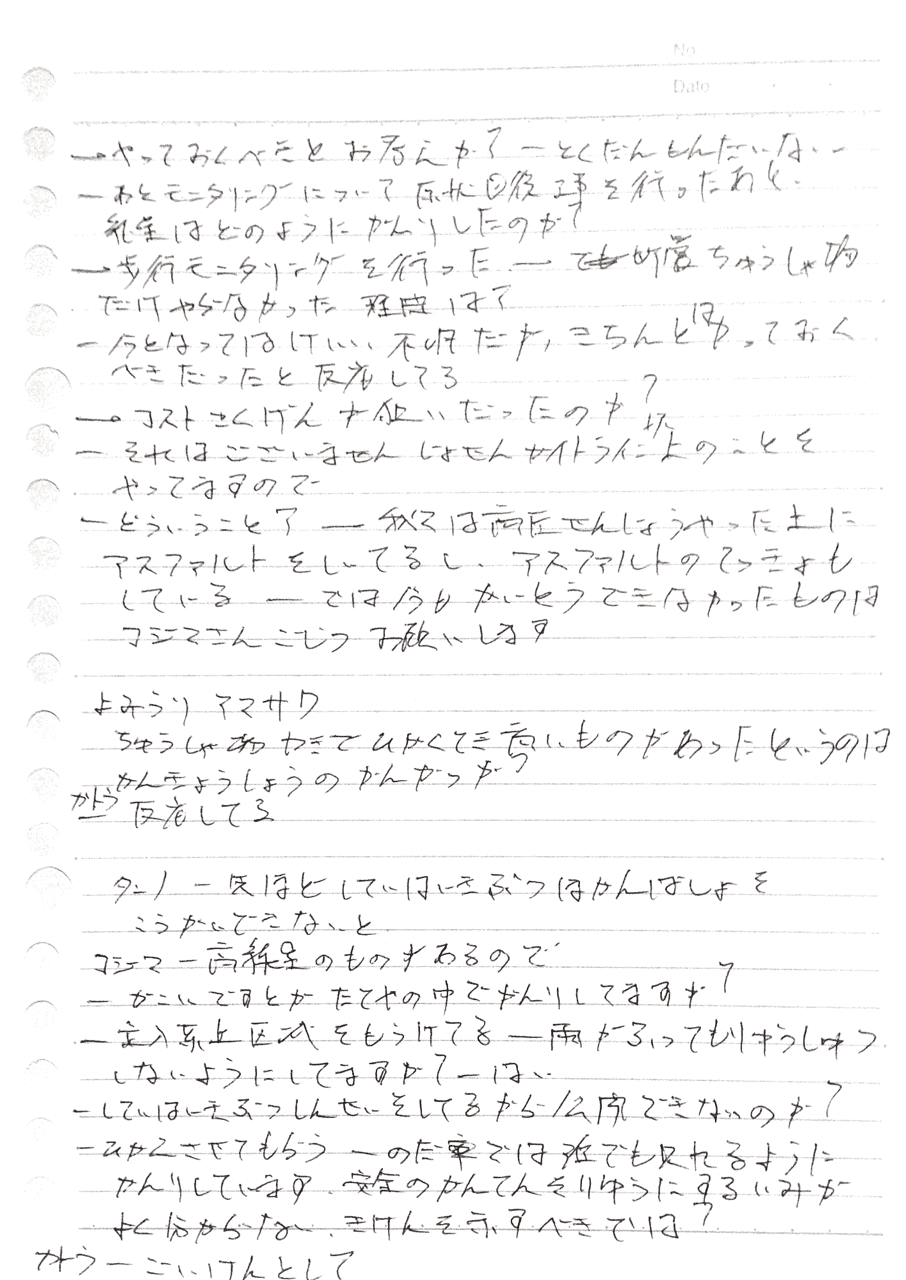 No
Date
→やっておくべきとお考えか? ーとくだんもんだいない ー
ーあとモニタリングについて 原状回復工事を行ったあと、
線量はどのようにかんりしたのか?
→歩行モニタリングを行った ー でも町営ちゅうしゃ場
だけやらなかった 理由は?
ー今となっては 不明だが, きちんとはかっておく
べきだったと反省してる
→コストさくげんが狙いだったのか?
ーそれはございません じょせんガイドラインに上のことを
やってますので
ーどういうこと? ー 我々は高圧せんじょうやった上に
アスファルトをしいてるし、アスファルトのてっきょも
している ー では今日かいとうできなかったものは
コジマさんこじつお願いします
よみうり アマサワ
ちゅうしゃ場 ひかくてき高いものがあったというのは
かんきょうしょうのかんかつか?
かとう
反省してる
タンノ ー 先ほどしていはいきぶつほかんばしょを
こうかいできないと
コジマ ー 高線量のものがあるので
ーかこいですとか たてやの中でかんりしてますか?
ー立入禁止区域をもうけてる ー 雨がふってもりゅうしゅつ
しないようにしてますか? ー はい
ーしていはいきぶつしんせいをしてるから公開できないのか?
ーひかえさせてもらう ー のだ市では誰でも見れるように
かんりしています、安全のかんてんをりゆうにするいみが
よく分からない、きけんを示すべきでは?
かとう ー ごいけんとして